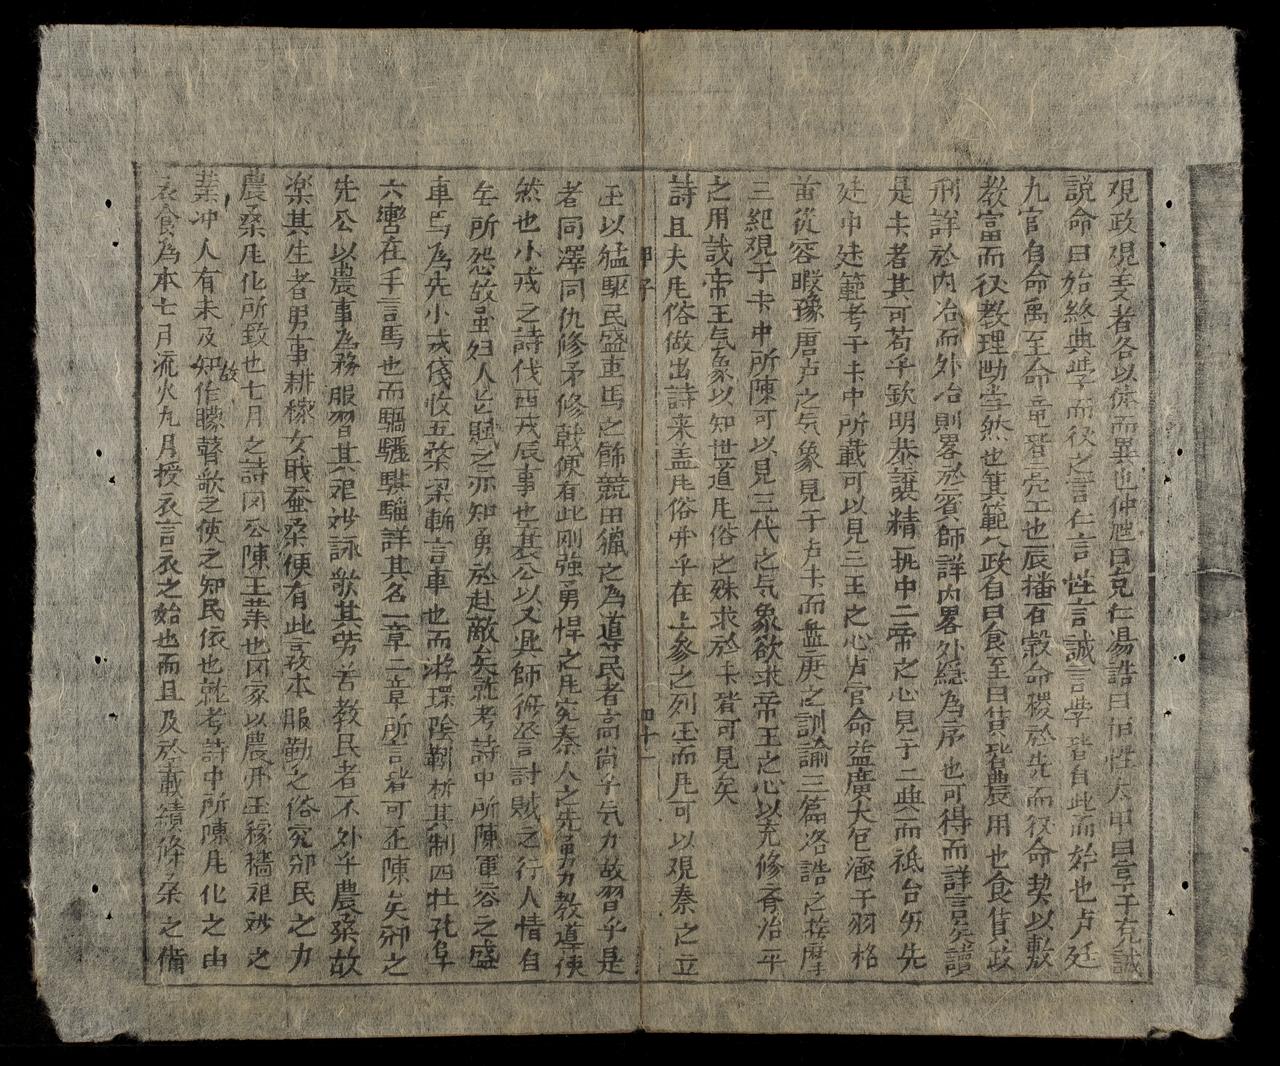 覌政覌㕛者各以体而異也仲虺曰克仁湯誥曰恒性太甲曰言于克誠
説命曰始終典斈而後之言仁言性言誠言斈皆自此而始也虍廷
九官自命禹至命竜皆亮工也辰播百穀命稷於先而後命契以敷
教富而後教理勢然也箕範八政自曰食至曰貨皆農用也食貨政
刑詳於内治而外治則畧於賓師詳内畧外緫為序也可得而詳言矣讀
是卡者其可苟乎欽明恭譲精一执中二帝之心見于二典而祗台㐲先
建中建範考于卡中所載可以見三王之心虍官命益廣大包涵干羽格
苗從容暇豫唐虍之気象見于虍卡而盤庚之訓諭三篇洛誥之
三紀覌于卡中所陳可以見三代之気象欲求帝王之心以充修齐治平
之用哉帝王気象以知世道凮俗之殊求於卡皆可見矣
詩且夫凮俗做出詩来盖凮俗 乎在上参之列玉而凮可以覌秦之立
四十一
玉以猛駆民盛車馬之餙競田獵之為導民者高尚乎気力故習乎是
者同澤同仇修矛修戟便有此剛強勇悍之凮宛秦人之先勇力教導使
然也小戎之詩伐西戎辰事也襄公以又興師 言討賊之行人情自
無所怨故虽妇人 賦之亦知勇於赴敵矣就考詩中所陳軍容之盛
車馬為先小戎俴收五楘梁輈言車也而游环陰靷析其制四牡孔阜
六轡在手言馬也而騧驪騏駵詳其名一章二章所言皆可歪陳矣邠之
先公以農事為務服習其艰 詠歌其劳苦教民者不外乎農桒故
楽其生者男事耕稼女戝蚕桒便有此务本服勤之俗宛邠民之力
農桒凮化所致也七月之詩 公陳王業也囯家以農 王稼穡艰 之
業冲人有未及知故作矇瞽歌之使之知民依也就考詩中所陳凮化之由
衣食為本七月流火九月授衣言衣之始也而且及於載績條桒之僃